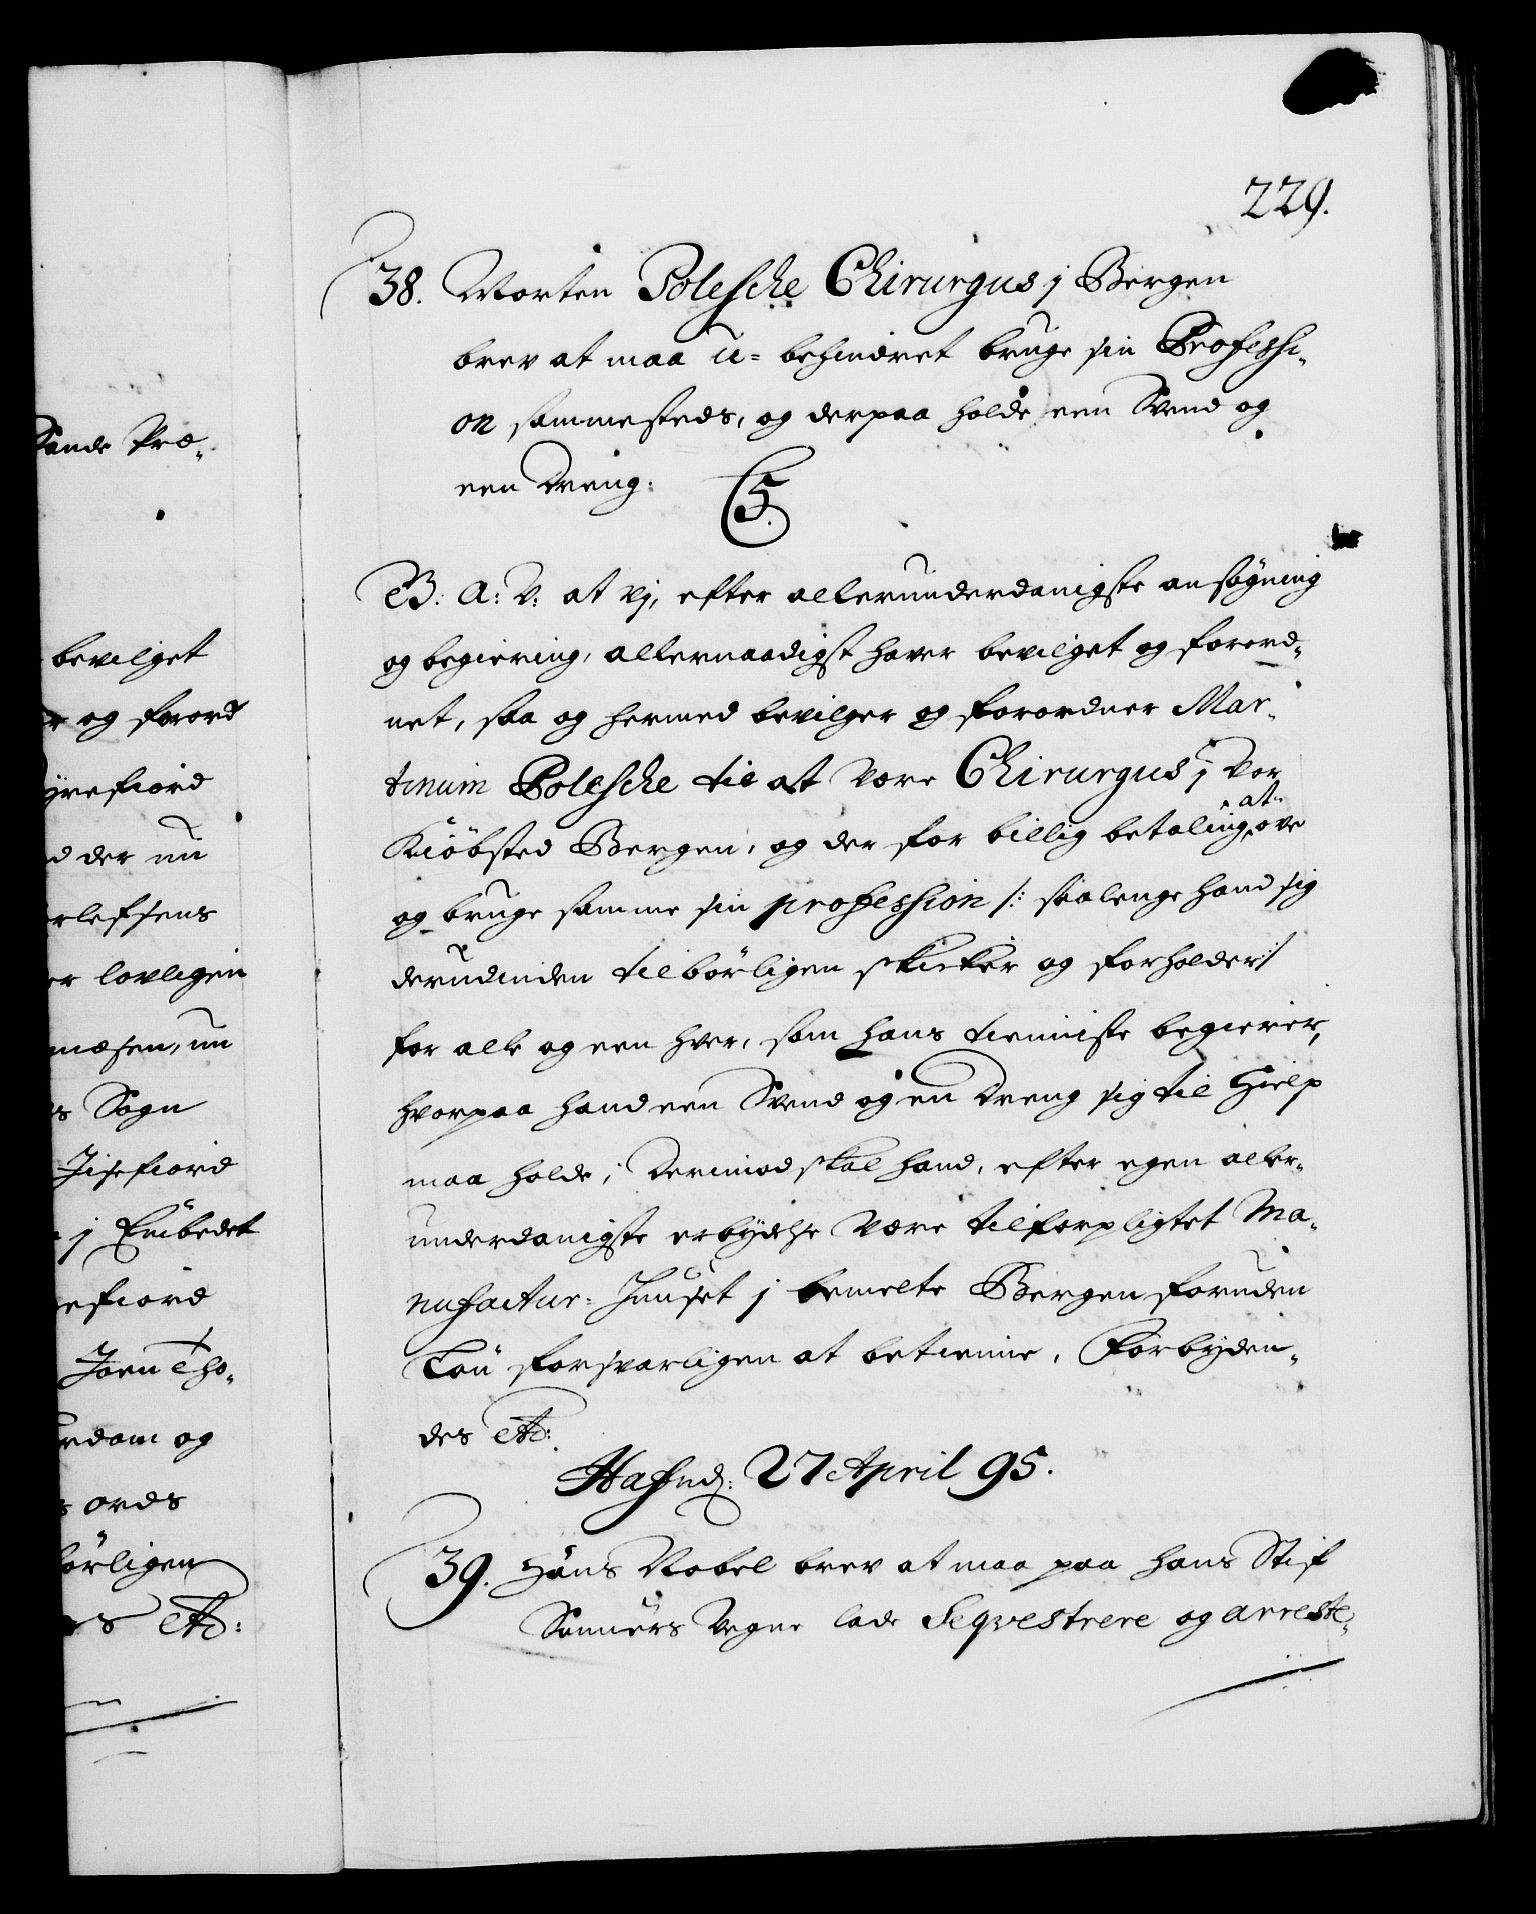 229.
38. Morten Polesche Chirurgus j Bergen
brev at maa u=behindret bruge sin Professi-
on sammesteds, og derpaa holde een Svend og
een Dreng.
C5.
G: A: V: at Vj, efter allerunderdanigste ansøgning
og begiering, allernaadigst haver bevilget og forord-
net, saa og hermed bevilger og forordner Mar-
tinum Polesche til at være Chirurgus j Vor
Kiöbsted Bergen, og der for billig betaling at øve
og bruge samme sin profession /: saalenge hand sig
derudinden tilbörligen skicker og forholder :/
for alle og een hver, som hans tienniste begierer,
hvorpaa hand een Svend og en Dreng sig til Hielp
maa holde; Derimod skal hand, efter egen aller-
underdanigste erbydelse være tilforpligtet Ma-
nufactur-Huuset j bemelte Bergen foruden
Løn forsvarligen at betienne, Forbyden-
des etc:
Hafn: 27 April 95.
39. Hans Nobel brev at maa paa hans Stif
Sønners Vegne lade Seqvestrere og arreste-
Sande Præ-
bevilget
r og forord
yrefiord
d der nu
rlefsens
er lovligen
mæsen, nu
s Sogn
Jisefiord
j Embedet
efiord
Joen Tho-
rdom og
s ords
börligen
es etc: